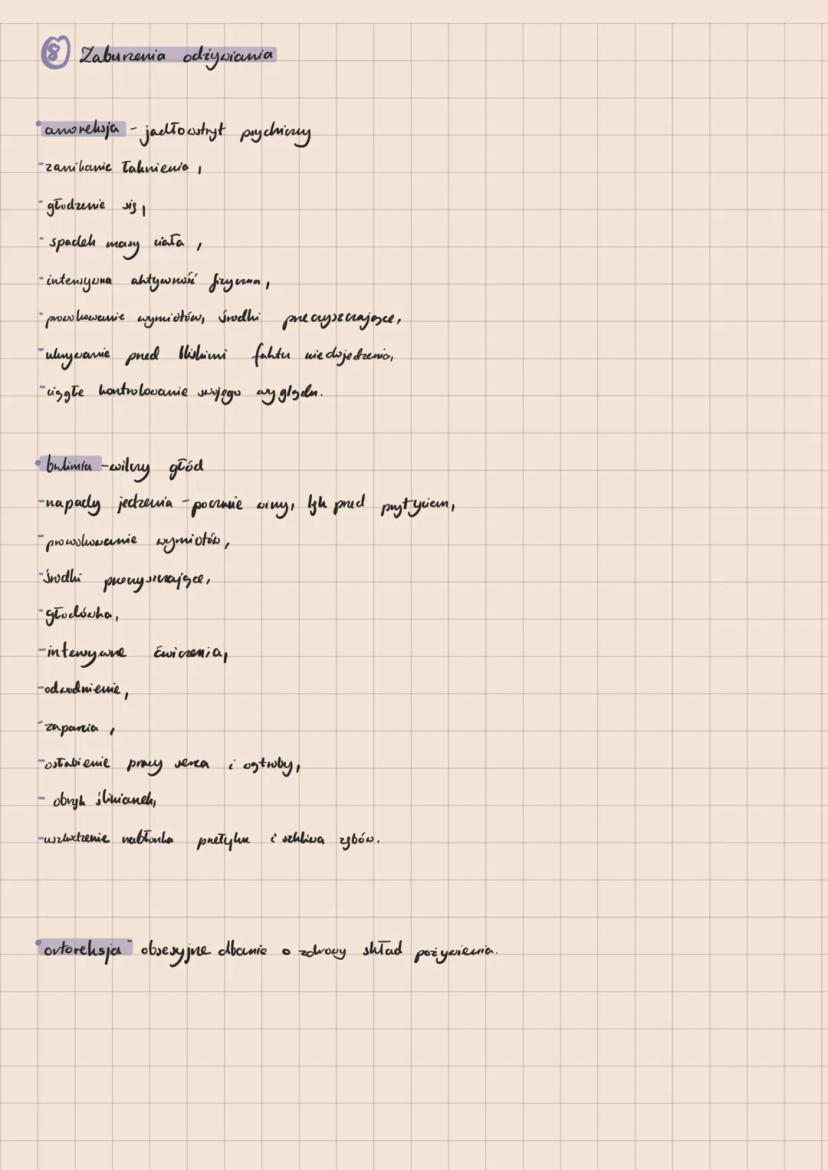 8 Zaburzenia odżywiania
• anoreksja - jadłowstręt psychiczny
- zanikanie łaknienia,
- głodzenie się,
- spadek masy ciała,
- intensywna aktywność fizyczna,
- prowokowanie wymiotów, środki przeczyszczające,
- ukrywanie przed bliskimi faktu niedojedzenia,
- ciągłe kontrolowanie swojego wyglądu.
• bulimia - wilczy głód
- napady jedzenia - poczucie winy, lęk przed przytyciem,
- prowokowanie wymiotów,
- środki przeczyszczające,
- głodówka,
- intensywne ćwiczenia,
- odwodnienie,
- zaparcia,
- osłabienie pracy serca i wątroby,
- obrzęk ślinianek,
- uszkodzenie nabłonka przełyku i szkliwa zębów.
• ortoreksja - obsesyjne dbanie o zdrowy skład pożywienia.